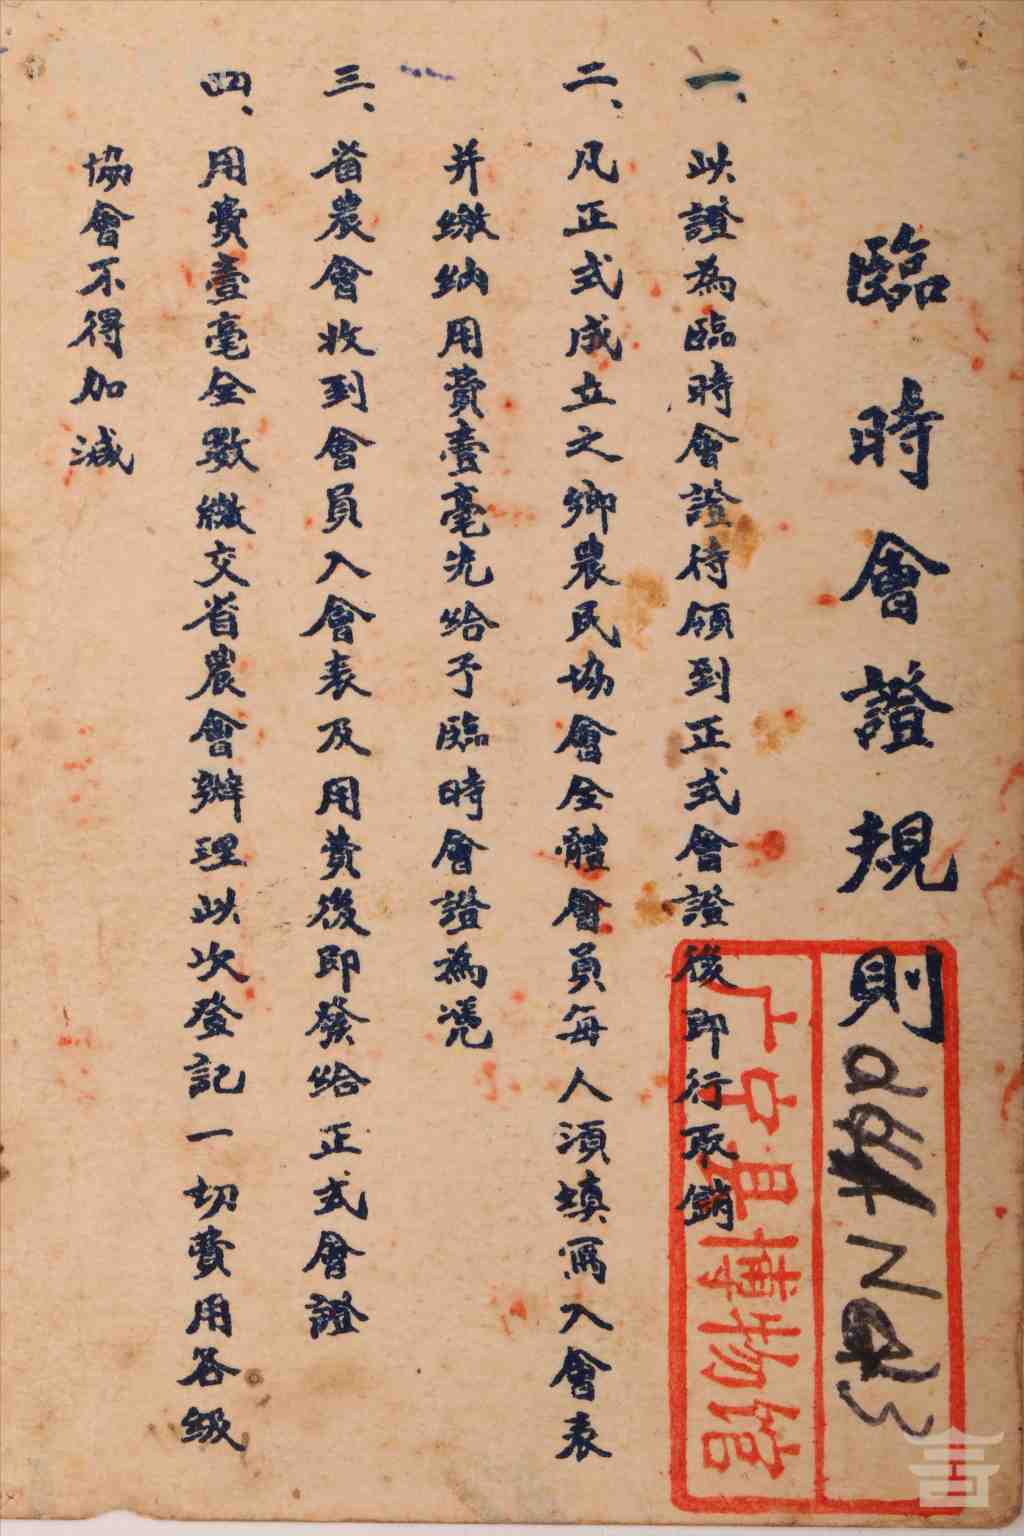 臨時會證規則
一、此證為臨時會證待領到正式會證後即行取銷
二、凡正式成立之鄉農民協會全體會員每人須填寫入會表
并繳納用費壹毫先給予臨時會證為憑
三、省農會收到會員入會表及用費後即發給正式會證
四、用費壹毫全數繳交省農會辦理此次登記一切費用各級
協會不得加減
广宁县博物馆